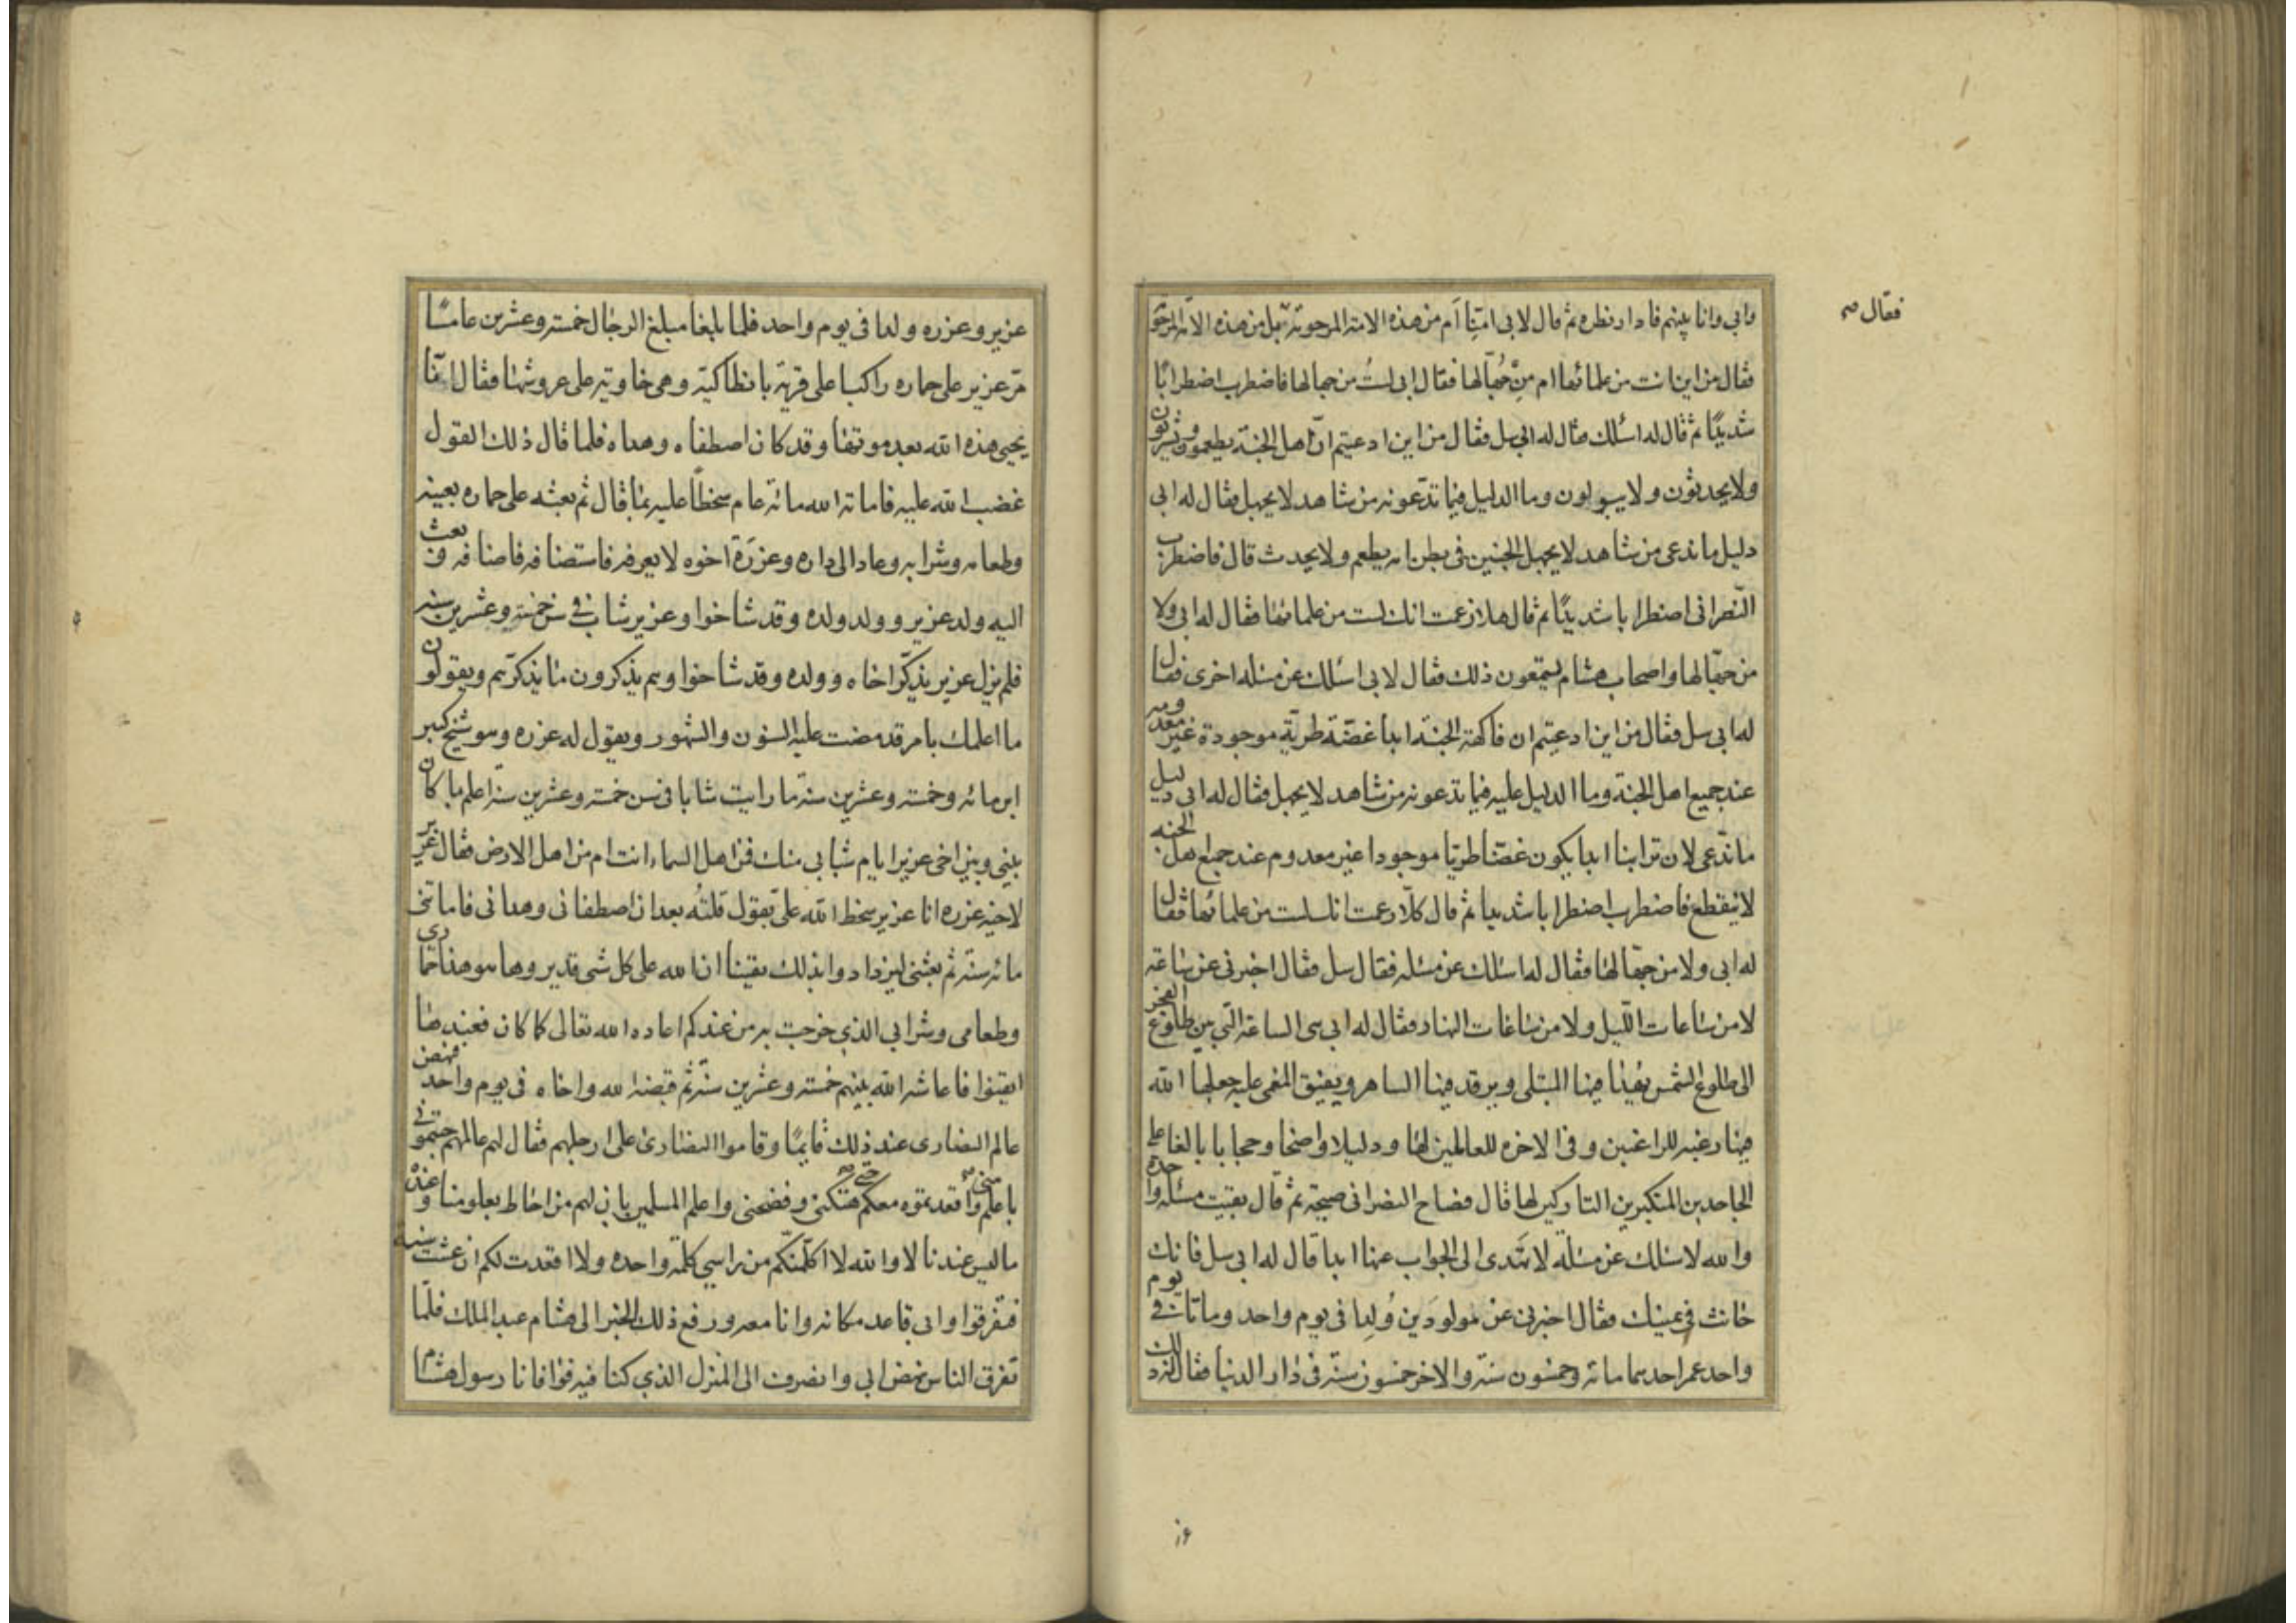 فقال صح
وابي وانا بينهم فادار نظره ثم قال لابي امنّا أم من هذه الامة المرحومة بل من هذه الامة المرحومة
فقال من اين انت من علمائها ام من جُهّالها فقال ابي لستُ من جهالها فاضطرب اضطرابًا
شديدًا ثم قال له اسئلك فقال له ابي سل فقال من اين ادعيتم انّ اهل الجنة يطعمون ويشربون
ولا يحدثون ولا يبولون وما الدليل فيما تدّعونه من شاهد لا يجهل فقال له ابي
دليل ما ندعى من شاهد لا يجهل الجنين في بطن امه يطعم ولا يحدث قال فاضطرب
النّصراني اضطرابا شديدًا ثم قال هلا زعمت انك لست من علمائها فقال له ابي ولا
من جهّالها واصحاب هشام يسمعون ذلك فقال لابي اسئلك عن مسئله اخرى فقال
له ابي سل فقال من اين ادعيتم ان فاكهة الجنة ابدا غضّة طريّة موجودة غير معدومه
عند جميع اهل الجنة وما الدليل عليه فيما تدعونه من شاهد لا يجهل فقال له ابي دليل
ما ندّعى لان ترابنا ابدا يكون غضّا طريّا موجودا غير معدوم عند جميع اهل الجنه
لا ينقطع فاضطرب اضطرابا شديدا ثم قال كلّا زعمت انك لست من علمائها فقال
له ابي ولا من جهّالها فقال له اسئلك عن مسئله فقال سل فقال اخبرني عن ساعة
لا من ساعات الليل ولا من ساعات النهار فقال له ابي هي الساعة الّتي بين طلوع الفجر
الى طلوع الشمس يهدأ فيها المبتلى ويرقد فيها الساهر ويفيق المغمى عليه جعلها الله
فيها رغبه للراغبين وفي الاخره للعالمين لها ودليلا واضحا وحجابا بالغا على
الجاحدين المتكبرين التاركين لها قال فصاح النصراني صيحة ثم قال بقيت مسئلة واحده
والله لاسئلك عن مسئلة لا تهتدى الى الجواب عنها ابدا قال له ابي سل فانك
حانث في يمينك فقال اخبرني عن مولودَين وُلِدا في يوم واحد وماتا في يوم
واحد عمر احدهما مائة وخمسون سنة والاخر خمسون سنة في دار الدنيا فقال له ذلك
عزير وعزره ولدا في يوم واحد فلما بلغا مبلغ الرجال خمسة وعشرين عامًا
مرّ عزير على حماره راكبا على قرية بانطاكية وهي خاوية على عروشها فقال انّا
يحيى هذه الله بعد موتها وقد كان اصطفاه وهداه فلما قال ذلك القول
غضب الله عليه فاماته الله مائة عام سخطاً عليه بما قال ثم بعثه على حماره بعينه
وطعامه وشرابه وعاد الى داره وعزَرَة اخوه لا يعرفه فاستضافه فاضافه وبعث
اليه ولد عزير وولد ولده وقد شاخوا وعزير شاب في سن خمسة وعشرين سنه
فلم يزل عزير يذكّر اخاه وولده وقد شاخوا وهم يذكرون ما يذكرّهم ويقولون
ما اعلمك بامر قد مضت عليه السنون والشهور ويقول له عزره وهو شيخ كبير
ابن مائه وخمسه وعشرين سنة ما رايت شابا في سن خمسة وعشرين سنة اعلم بما كان
بيني وبين اخي عزير ايام شبابي منك فمن اهل السماء انت ام من اهل الارض فقال عزير
لاخيه عزره انا عزير سخط الله علىّ بقول قلتُه بعد ان اصطفاني وهداني فاماتني
مائه سنة ثم بعثني ليزدادوا بذلك يقينا ان الله على كل شي قدير وها هو هذا حماري
وطعامي وشرابي الذي خرجت به من عندكم اعاده الله تعالى كما كان فعندها
ايقنوا فاعاشه الله بينهم خمسة وعشرين سنة ثم قبضه الله واخاه في يوم واحد فنهض
عالم النصارى عند ذلك قايمًا وقاموا النصارى على ارجلهم فقال لهم عالمهم جئتموني
باعلم منّى صح واقعدتموه معكم حتّى صح هتكني وفضحني واعلم المسلمين بان لهم من احاط بعلومنا وعنده
ما ليس عندنا لا والله لا اكلّمنّكم من راسي كلمة واحده ولا اقعدت لكم ان عشت سنه
فتفرقوا وابي قاعد مكانه وانا معه ورفع ذلك الخبر الى هشام عبد الملك فلمّا
تفرق الناس نهض ابي وانصرف الى المنزل الذي كنا فيه فوافانا رسول هشام